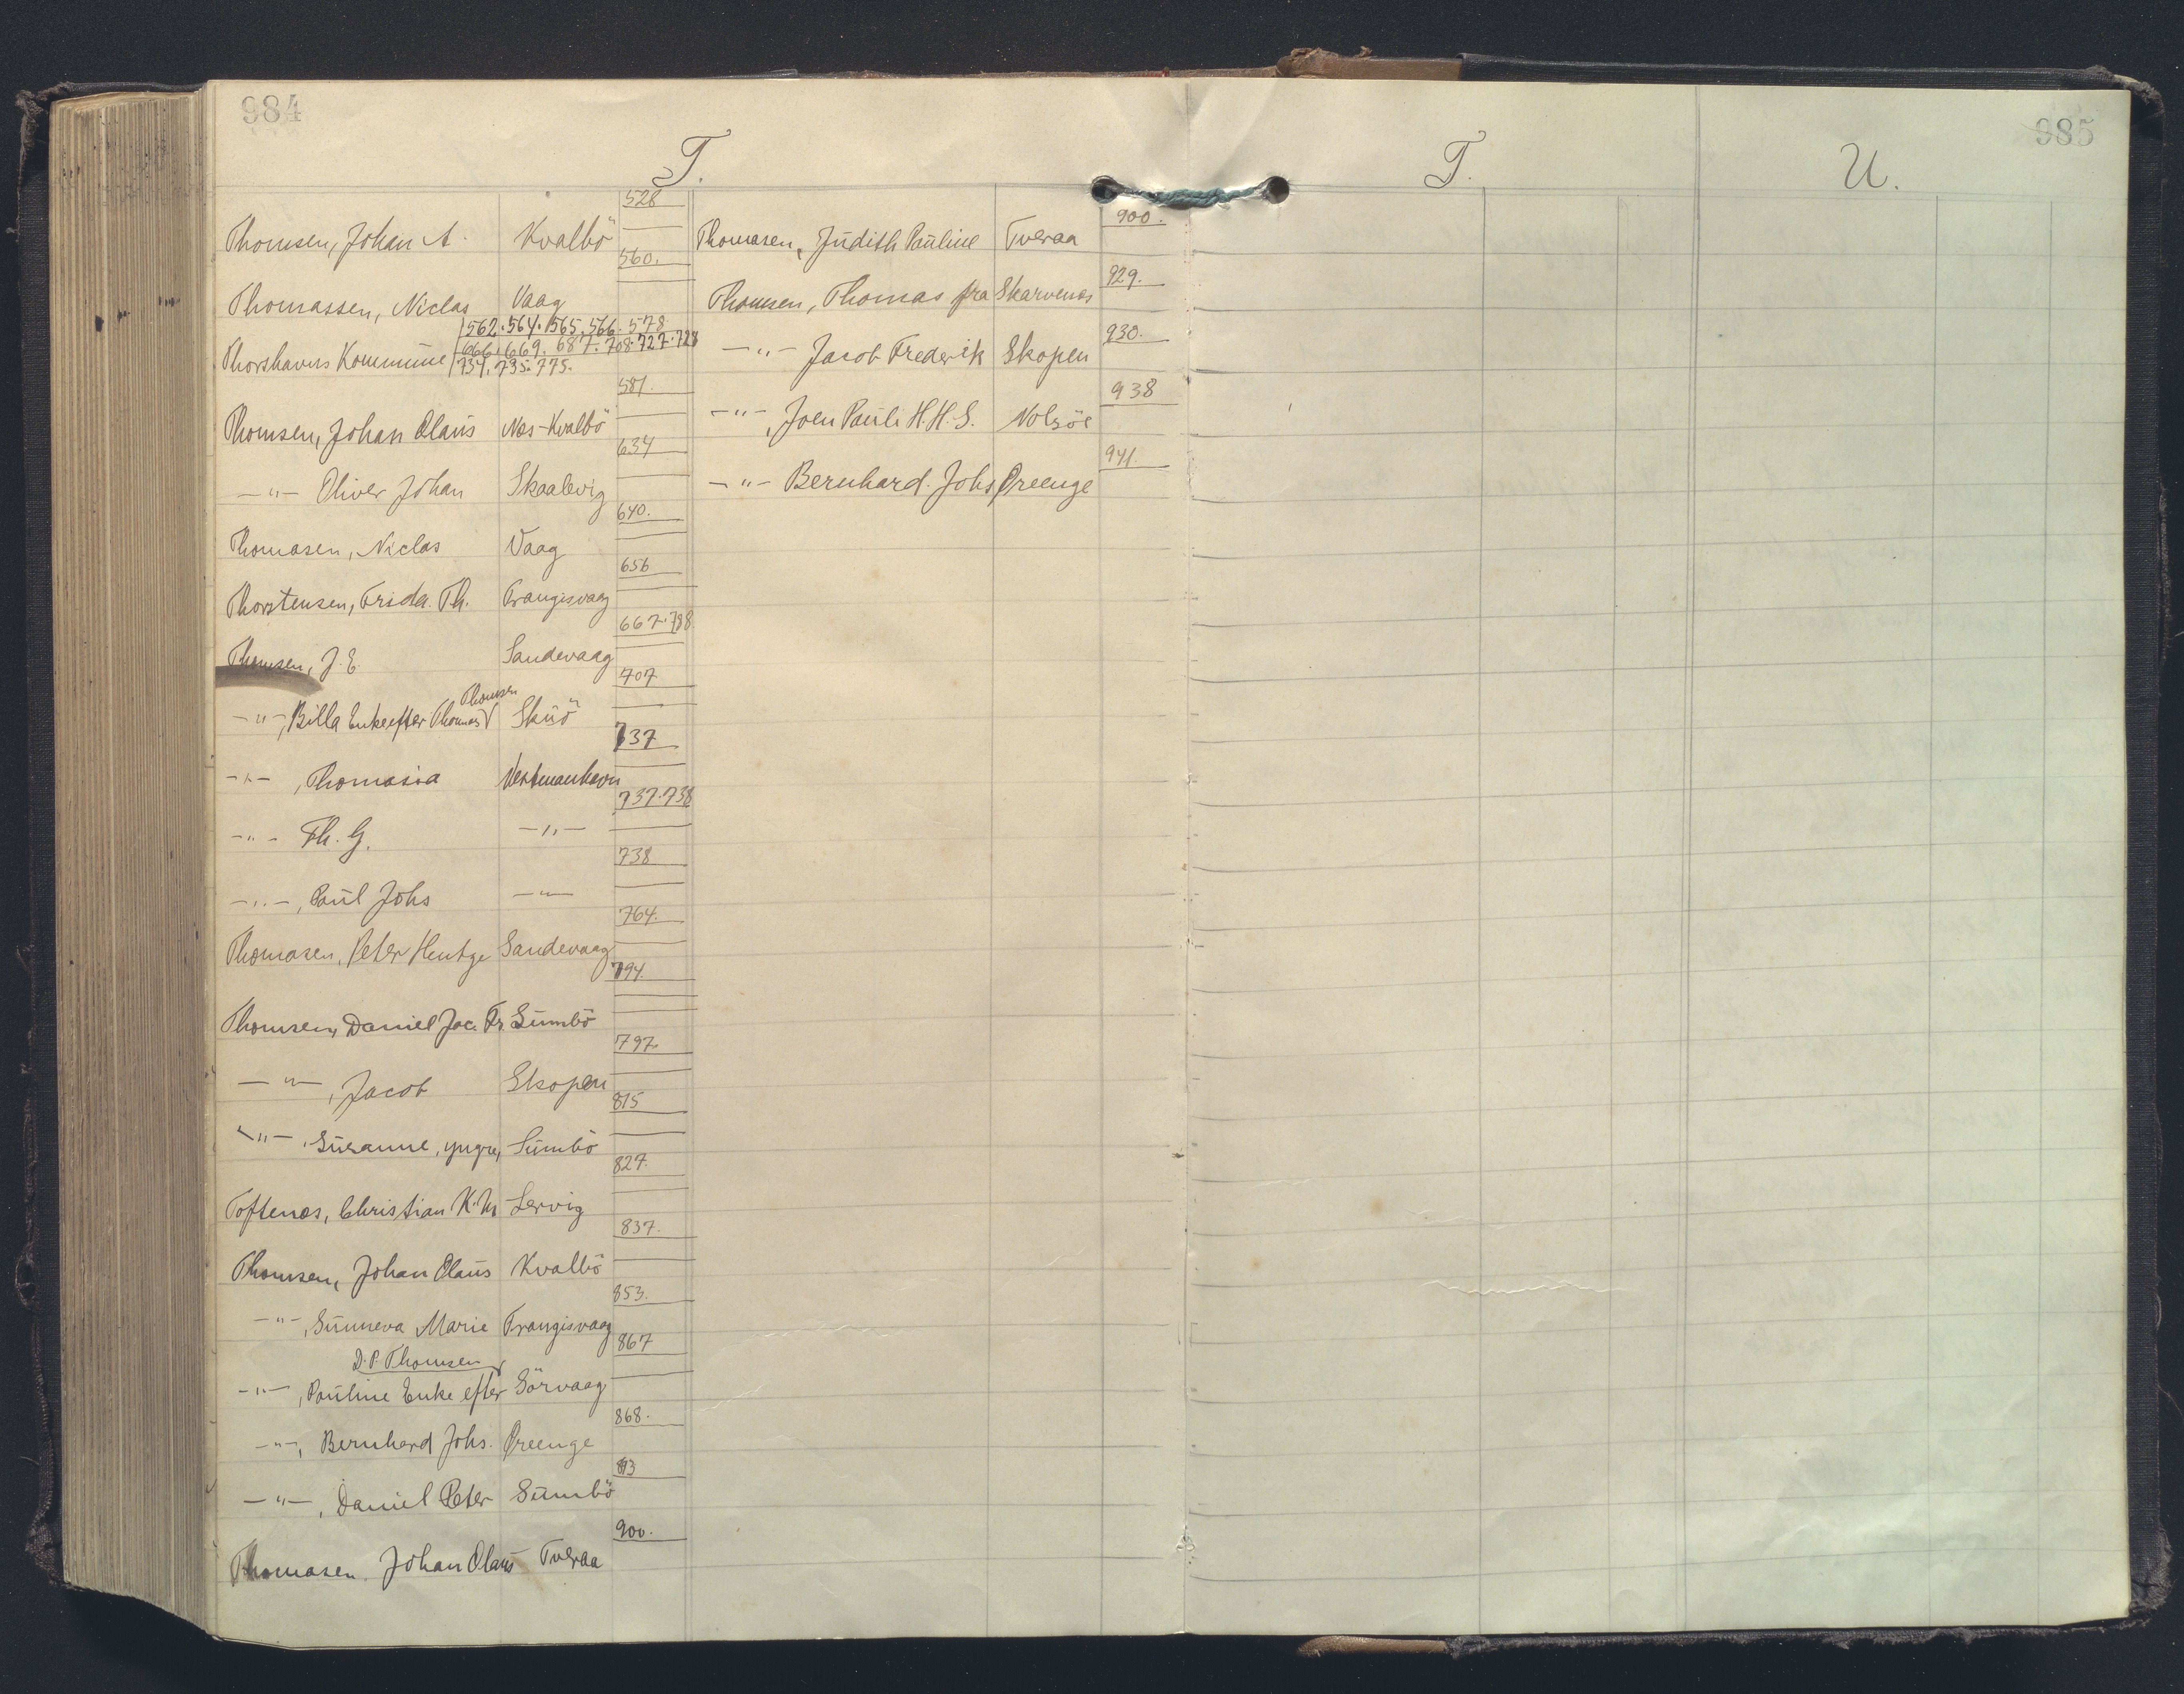 984
T.
528
Thomsen, Johan A. Kvalbö
560.
Thomassen, Niclas Vaag
562. 564. 565. 566. 578
Thorshavns Kommune 666. 669. 687. 708. 727. 728
734. 735. 775.
581.
Thomsen, Johan Olaus Nes-Kvalbö
634
-"- Oliver Johan Skaalevig
640.
Thomasen, Niclas Vaag
656
Thorstensen, Frida. Th. Trangisvaag
667. 788
Thomsen, J. E. Sandevaag
707
Thomsen
-"-, Billa Enke efter Thomas V Skuö
737
-"-, Thomasia Vestmanhavn
737. 738
-"- Th. G. -"-
738
-"-, Poul Johs -"-
764.
Thomasen, Peter Hentze Sandevaag
794.
Thomsen, Daniel Jac. Fr. Sumbö
797.
-"-, Jacob Skopen
815
-"-, Susanne, yngre, Sumbö
827.
Toftenes, Christian K. M. Lervig
837.
Thomsen, Johan Olaus Kvalbö
853.
-"-, Sunneva Marie Trangisvaag
867
D. P. Thomsen
-"-, Pauline Enke efter Sörvaag
868.
-"-, Bernhard Johs. Preenge
-"-, Daniel Peter Sumbö
900.
Thomasen. Johan Olaus Tveraa
900.
Thomasen, Judith Pauline Tveraa
929.
Thomsen, Thomas fra Skarvenes
930.
-"- Jacob Frederik Skopen
938
-"-, Joen Pauli H. H. S. Nolsöe
941.
-"- Bernhard. Johs, Preenge
985
T.
U.